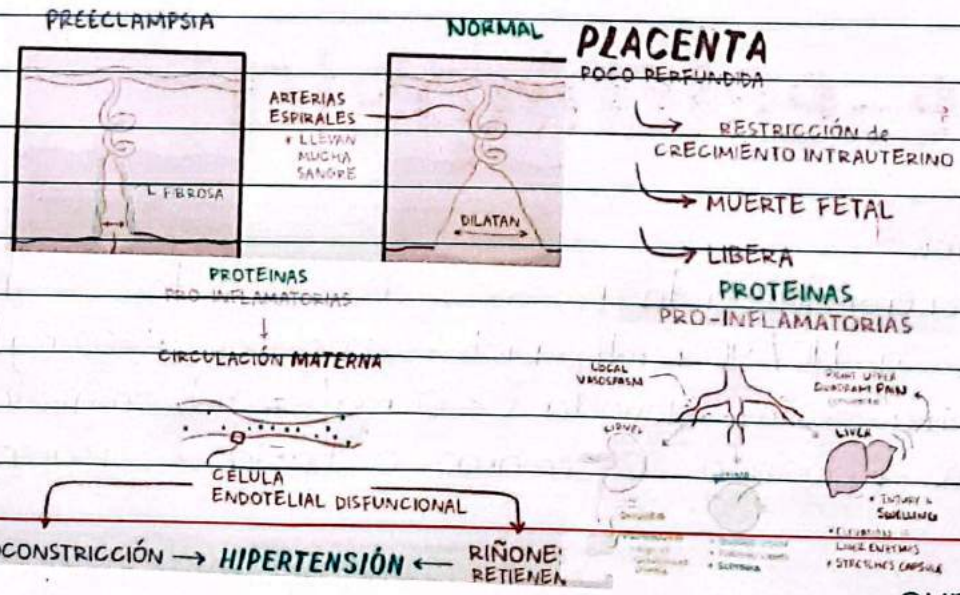 PREECLAMPSIA
L. FIBROSA
ARTERIAS
ESPIRALES
* LLEVAN
MUCHA
SANGRE
NORMAL
DILATAN
PLACENTA
POCO PERFUNDIDA
RESTRICCIÓN de
CRECIMIENTO INTRAUTERINO
MUERTE FETAL
LIBERA
PROTEINAS
PRO-INFLAMATORIAS
PROTEINAS
PRO-INFLAMATORIAS
CIRCULACIÓN MATERNA
CÉLULA
ENDOTELIAL DISFUNCIONAL
OCONSTRICCIÓN → HIPERTENSIÓN ←
RIÑONE
RETIENEN
LOCAL
VASOSPASM
RIGHT UPPER
QUADRANT PAIN
KIDNEY
RETINA
LIVER
* INJURY &
SWELLING
* ELEVATION
LIVER ENZYMES
* STRETCHES CAPSULE